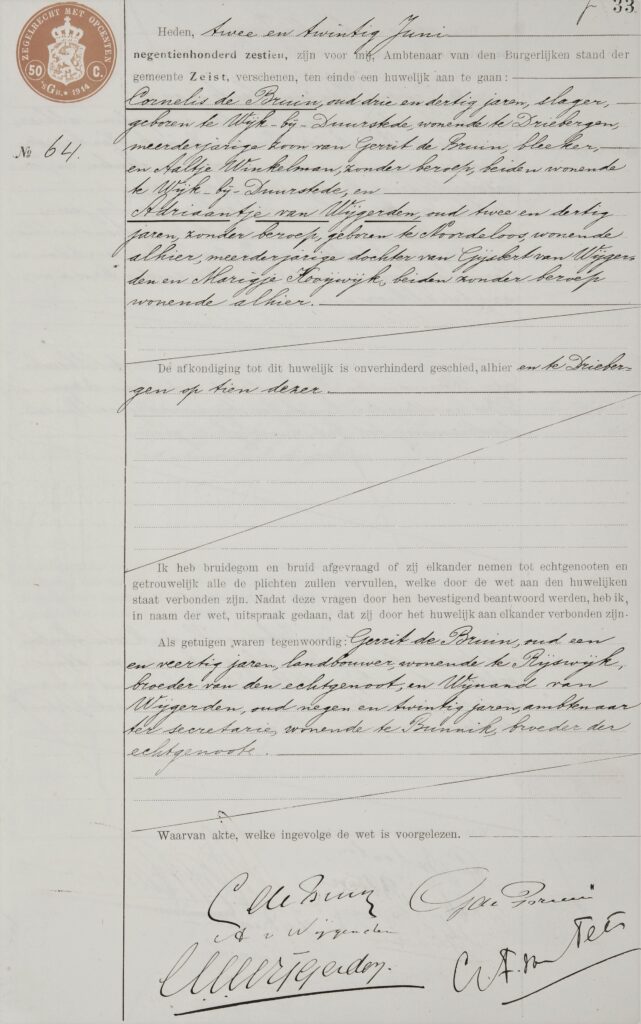 33
ZEGELRECHT MET OPCENTEN
50 C.
'sGR. 1914
Heden, twee en twintig Juni
negentienhonderd zestien, zijn voor mij, Ambtenaar van den Burgerlijken stand der
gemeente Zeist, verschenen, ten einde een huwelijk aan te gaan:
Cornelis de Bruin, oud drie en dertig jaren, slager,
geboren te Wijk-bij-Duurstede, wonende te Driebergen,
№ 64.
meerderjarige zoon van Gerrit de Bruin, bleeker,
en Aaltje Winkelman, zonder beroep, beiden wonende
te Wijk-bij-Duurstede, en
Adriaantje van Wijgerden, oud twee en dertig
jaren, zonder beroep, geboren te Noordeloos, wonende
alhier, meerderjarige dochter van Gijsbert van Wijger-
den en Marigje Kooijwijk, beiden zonder beroep
wonende alhier.
De afkondiging tot dit huwelijk is onverhinderd geschied, alhier en te Drieber-
gen op tien dezer
Ik heb bruidegom en bruid afgevraagd of zij elkander nemen tot echtgenooten en
getrouwelijk alle de plichten zullen vervullen, welke door de wet aan den huwelijken
staat verbonden zijn. Nadat deze vragen door hen bevestigend beantwoord werden, heb ik,
in naam der wet, uitspraak gedaan, dat zij door het huwelijk aan elkander verbonden zijn.
Als getuigen waren tegenwoordig: Gerrit de Bruin, oud een
en veertig jaren, landbouwer, wonende te Rijswijk,
broeder van den echtgenoot, en Wijnand van
Wijgerden, oud negen en twintig jaren, ambtenaar
ter secretarie, wonende te Bunnik, broeder der
echtgenoote.
Waarvan akte, welke ingevolge de wet is voorgelezen.
C de Bruin
G de Bruin
A v Wijgerden